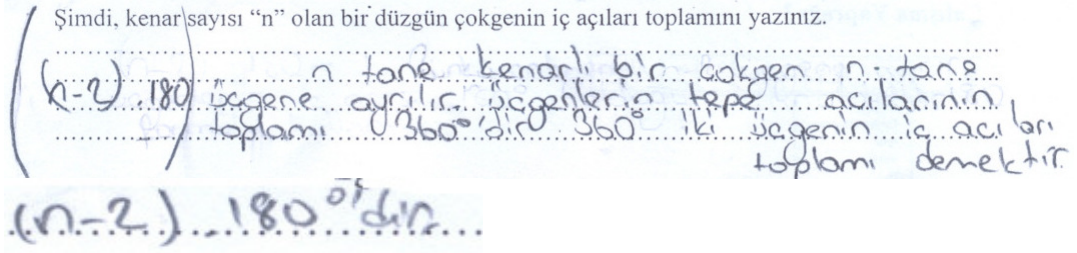 Şimdi, kenar sayısı “n” olan bir düzgün çokgenin iç açıları toplamını yazınız.
n tane kenarlı bir çokgen n tane
(n-2).180 üçgene ayrılır. üçgenlerin tepe açılarının
toplamı 360°'dir. 360° iki üçgenin iç açıları
toplamı demektir.
(n-2).180°'dir.